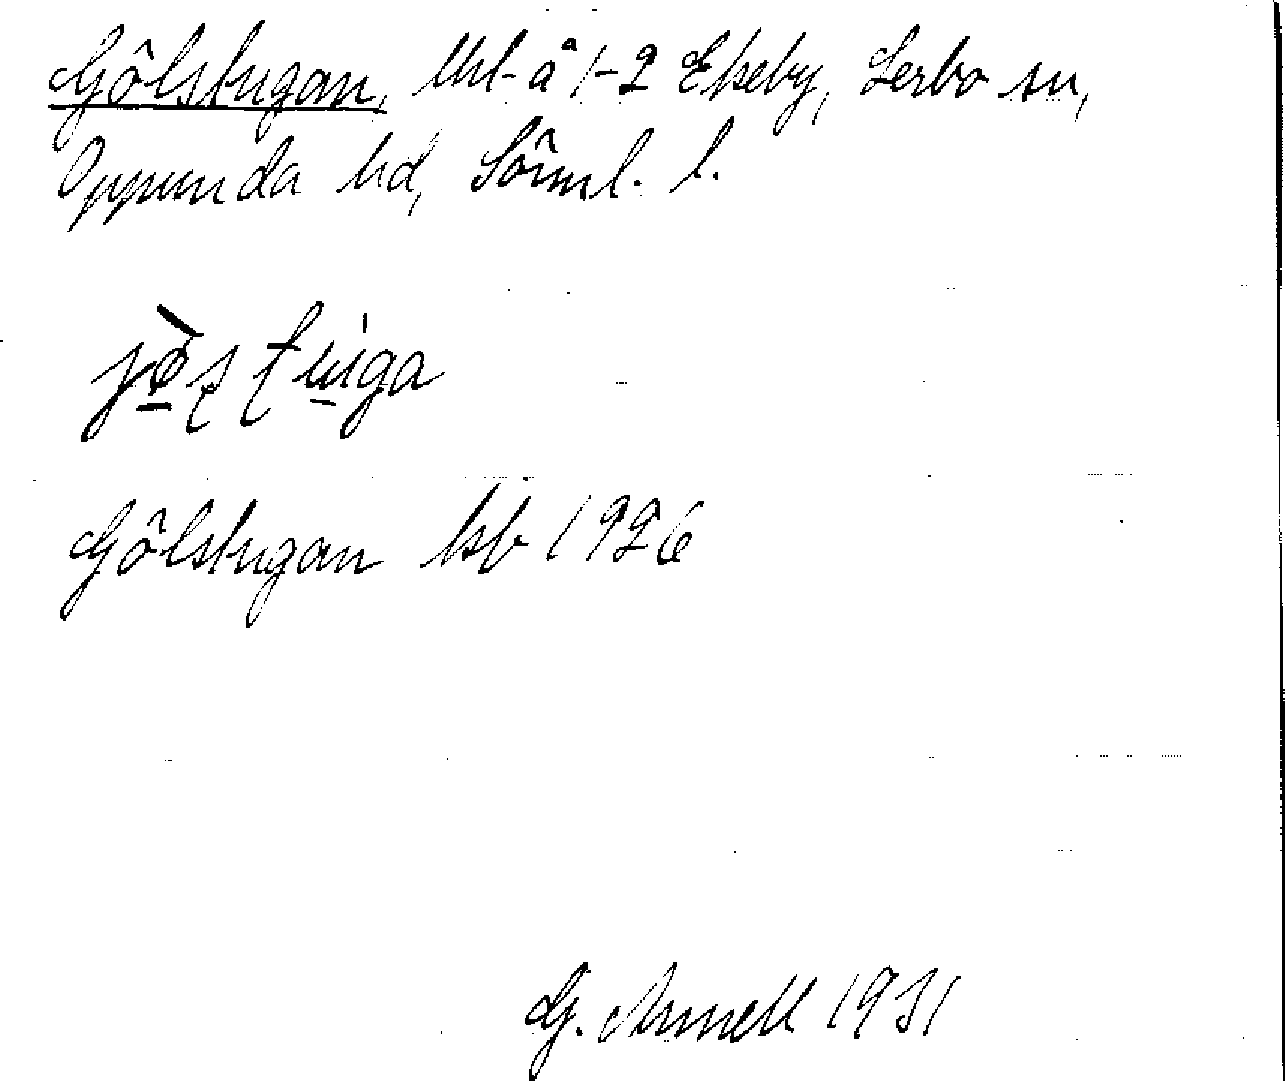 Gölstugan, Uhl å 1-2 Ekeby, Lerbo sn,
Oppunda hd, Sörml. l.
Gölstugan ksb 1926
G. Armell 1931